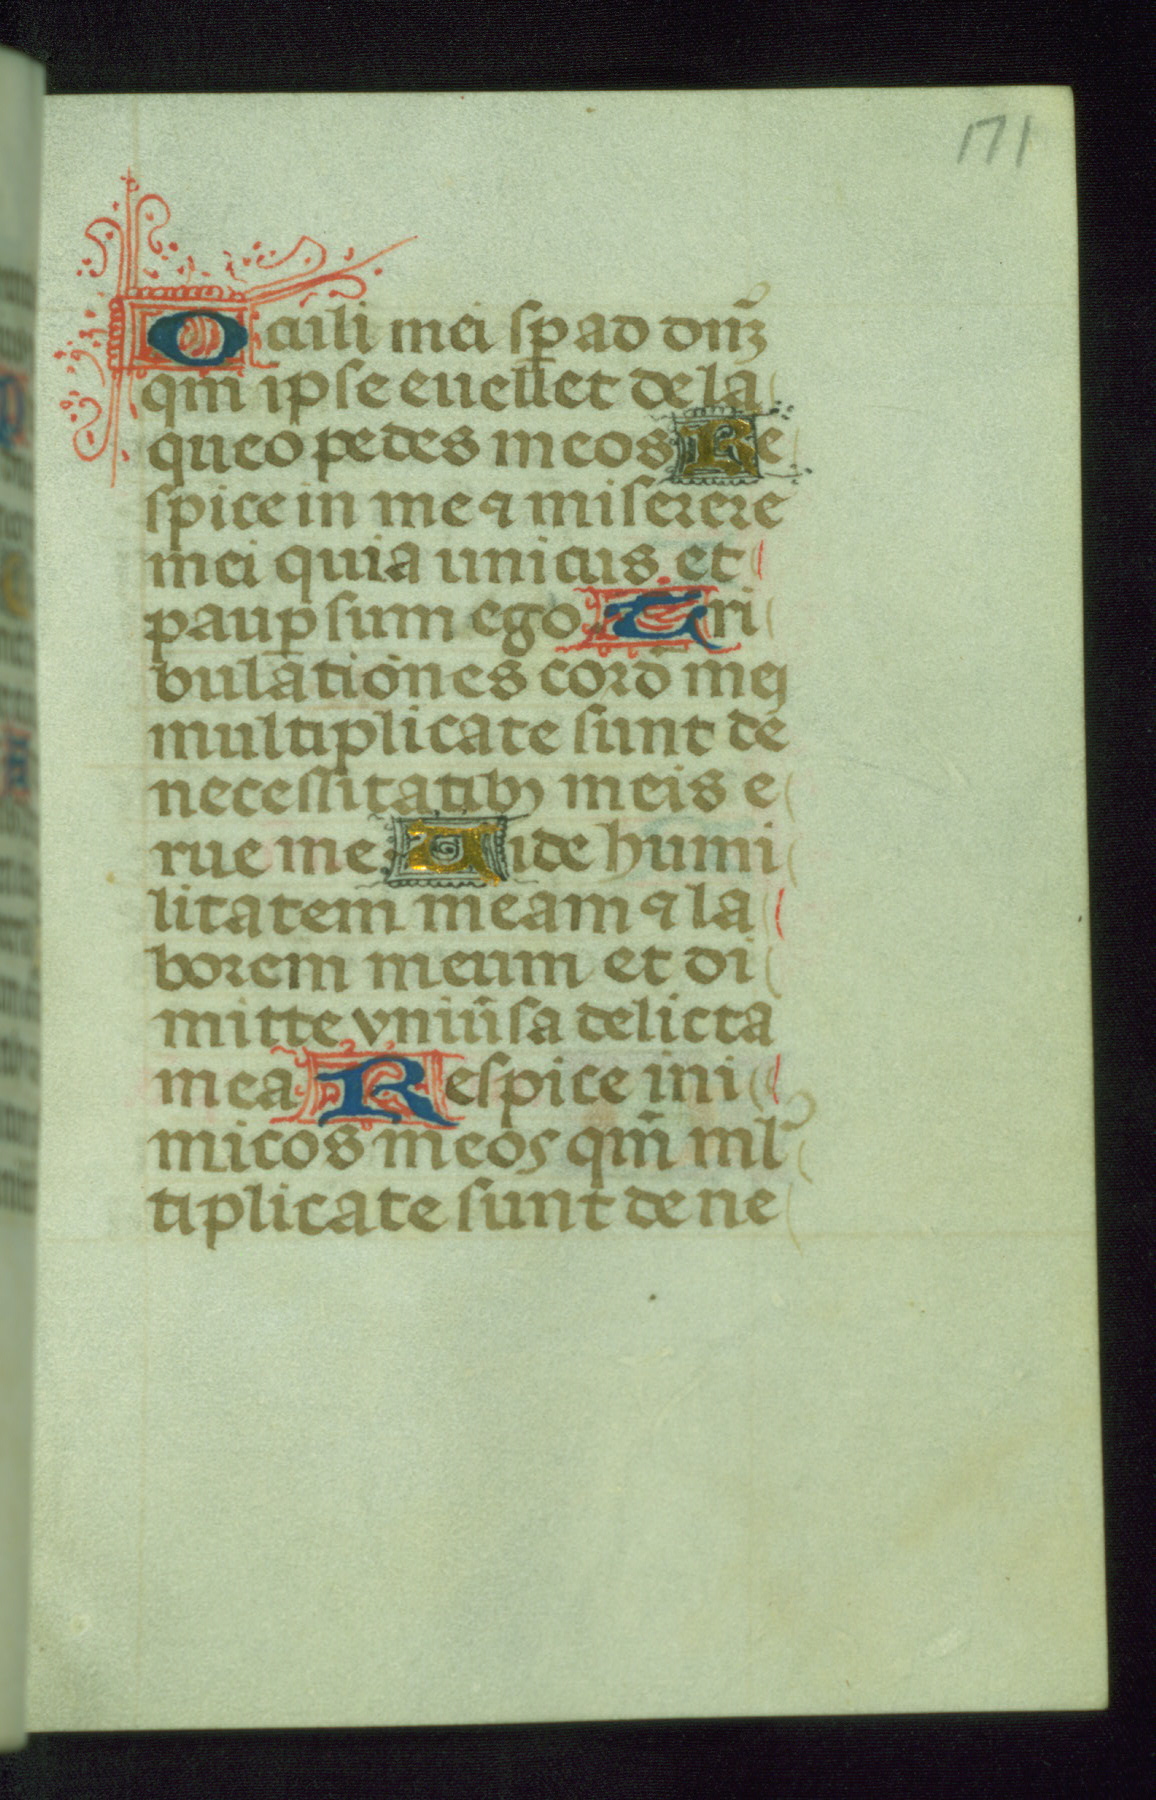 171
Oculi mei sp̲ ad dnʒ̃
qm̃ ipse euellet de la
queo pedes meos Re
spice in me ⁊ miserere
mei quia unicus et
paup̲ sum ego Tri
bulationes cord̃ mei
multiplicate sunt de
necessitatibꝫ meis e
rue me Uide humi
litatem meam ⁊ la
borem meum et di
mitte vniũsa delicta
mea Respice ini
micos meos qm̃ ml̾
tiplicate sunt de ne